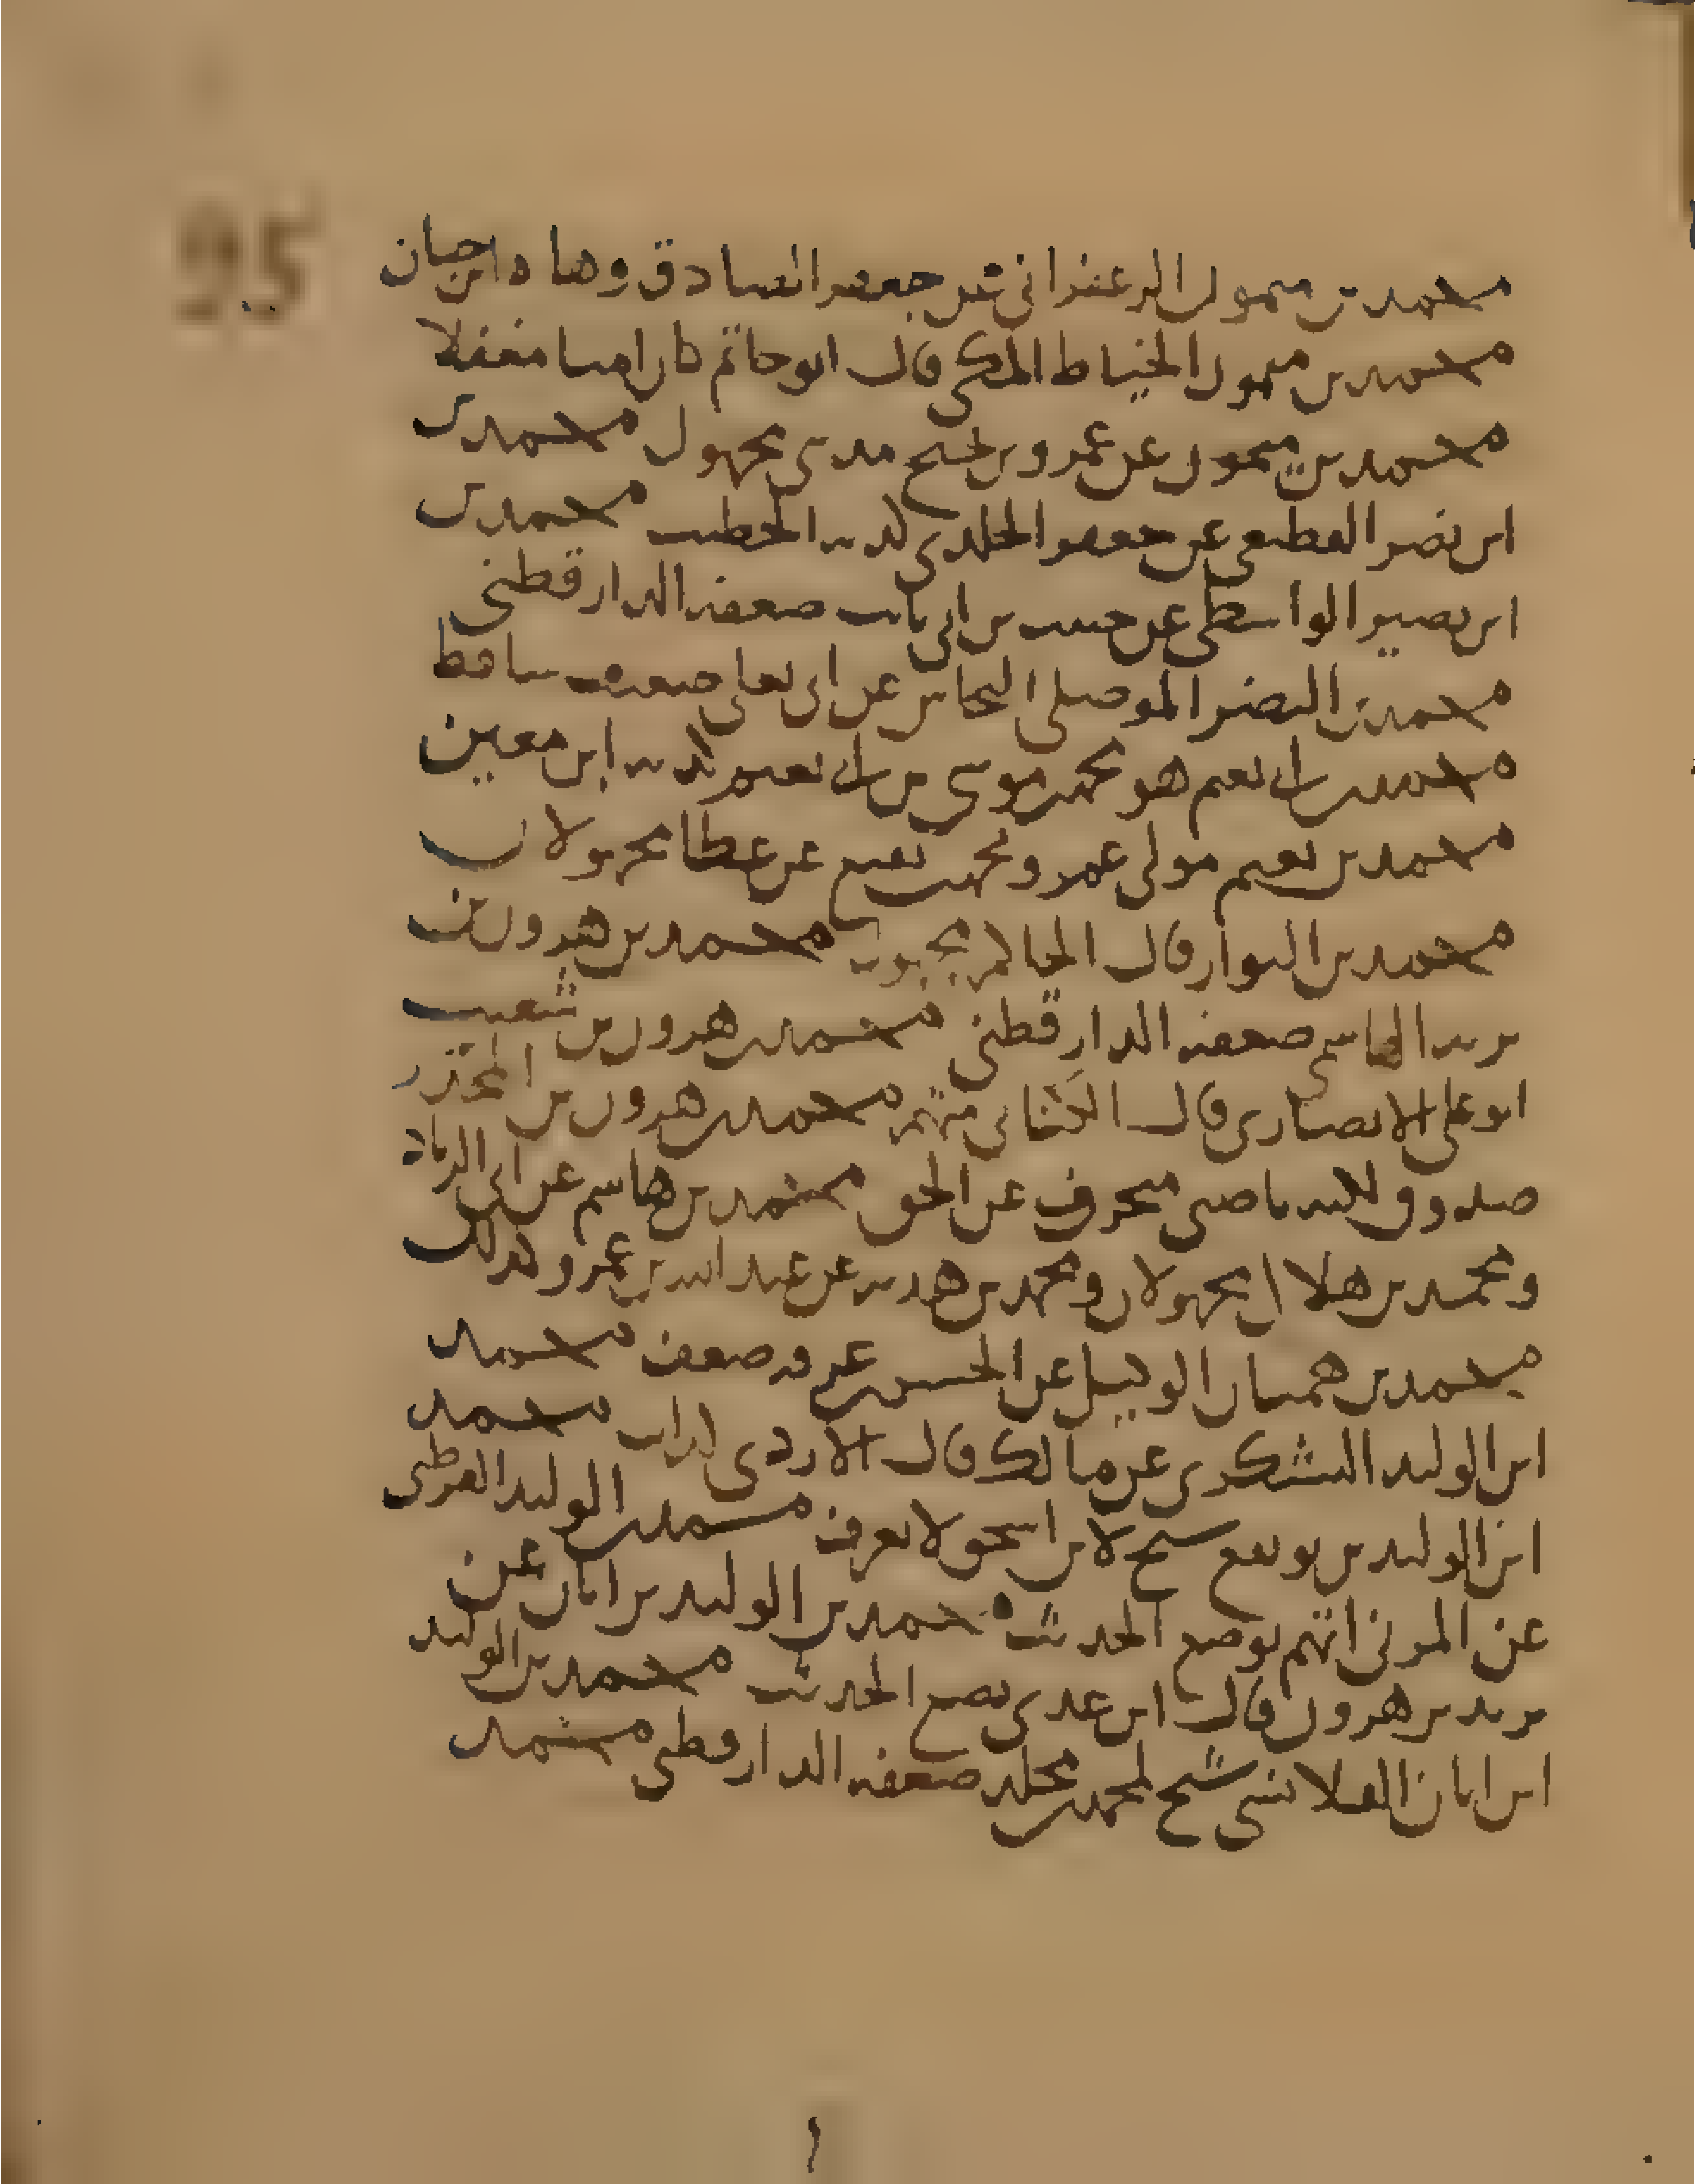 95
محمد بن ميمون الزعفراني عن جعفر الصادق وهاه ابن حبان
محمد بن ميمون الخياط المكي قال ابو حاتم كان اميا مغفلا
محمد بن ميمون عن عمرو بن مدني مجهول محمد بن
ابن نصر القطيعي عن جعفر الخلدي كذبه الخطيب محمد بن
ابن نصير الواسطي عن حبيب بن ابي ثابت ضعفه الدارقطني
محمد بن النضر الموصلي النحاس عن ابي يعلى ضعيف ساقط
محمد بن ابي نعيم هو محمد بن موسى بن ابي نعيم كذبه ابن معين
محمد بن نعيم مولى عمر ومحمد بن نعيم عن عطا مجهولان
محمد بن النوار قال الحاكم مجهول محمد بن هرون بن
بريه الهاشمي ضعفه الدارقطني محمد بن هرون بن شعيب
ابو علي الانصاري قال الكتاني متهم محمد بن هرون بن المجدر
صدوق لكنه ناصبي منحرف عن الحق محمد بن هاشم عن ابي الزناد
ومحمد بن هلال مجهولان ومحمد بن هدبه عن عبد الله بن عمرو كذلك
محمد بن هميان الوكيل عن الحسن بن عرفه ضعف محمد
ابن الوليد اليشكري عن مالك قال الازدي كذاب محمد
ابن الوليد بن نويفع شيخ لابن اسحق لا يعرف محمد بن الوليد القرظي
عن المزني اتهم بوضع الحديث محمد بن الوليد بن ابان عن
يزيد بن هرون قال ابن عدي يضع الحديث محمد بن الوليد
ابن ابان القلانسي شيخ لمحمد بن مخلد ضعفه الدارقطني محمد